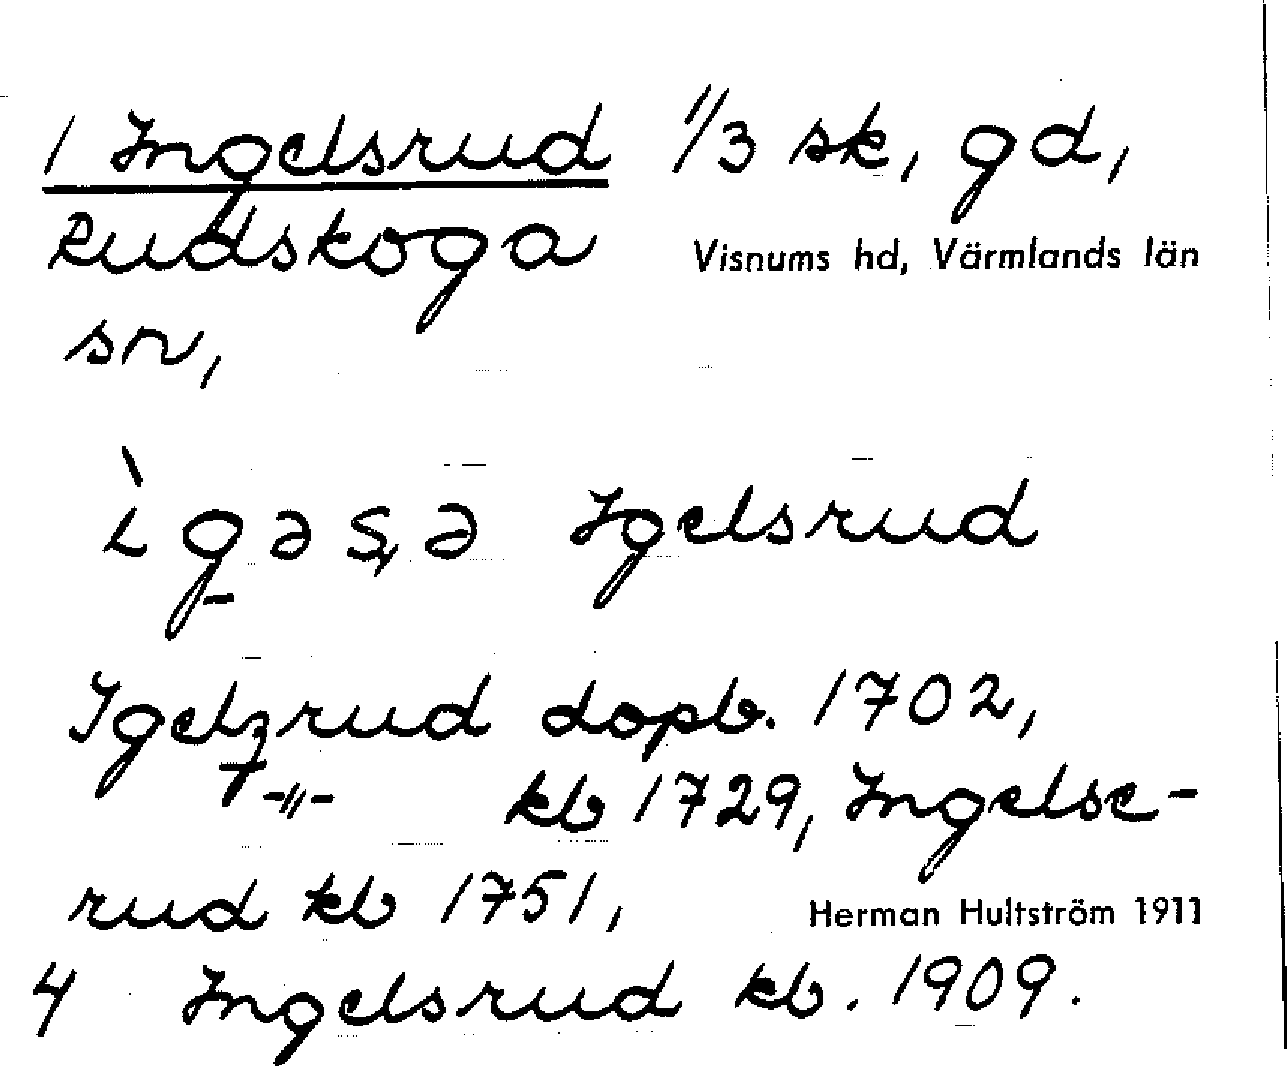 1 Ingelsrud 1/3 sk, gd,
Rudskoga Visnums hd, Värmlands län
sn,
ìgəsə Igelsrud
Igelzrud dopb. 1702,
-"- kb 1729, Ingelse-
rud kb 1751, Herman Hultström 1911
4 Ingelsrud kb. 1909.